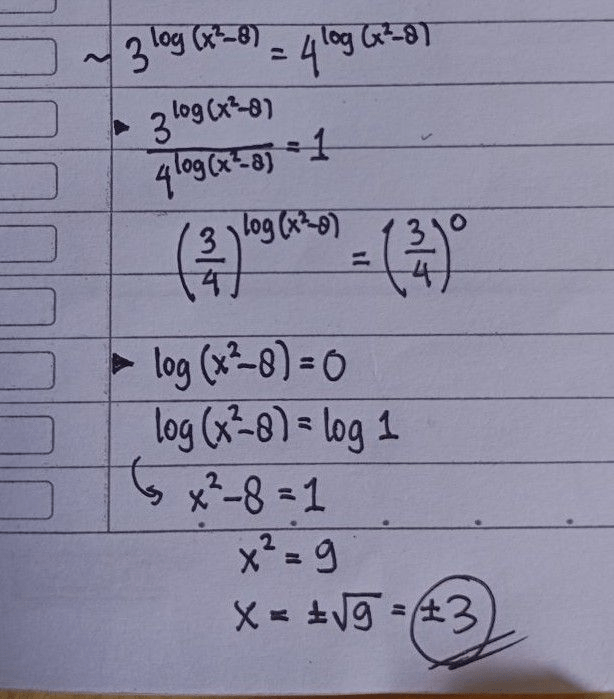 ~ 3^log(x²-8) = 4^log(x²-8)
▸ 3^log(x²-8) / 4^log(x²-8) = 1
(3/4)^log(x²-8) = (3/4)^0
▸ log(x²-8) = 0
log(x²-8) = log 1
↳ x²-8 = 1
x² = 9
x = ±√9 = ±3